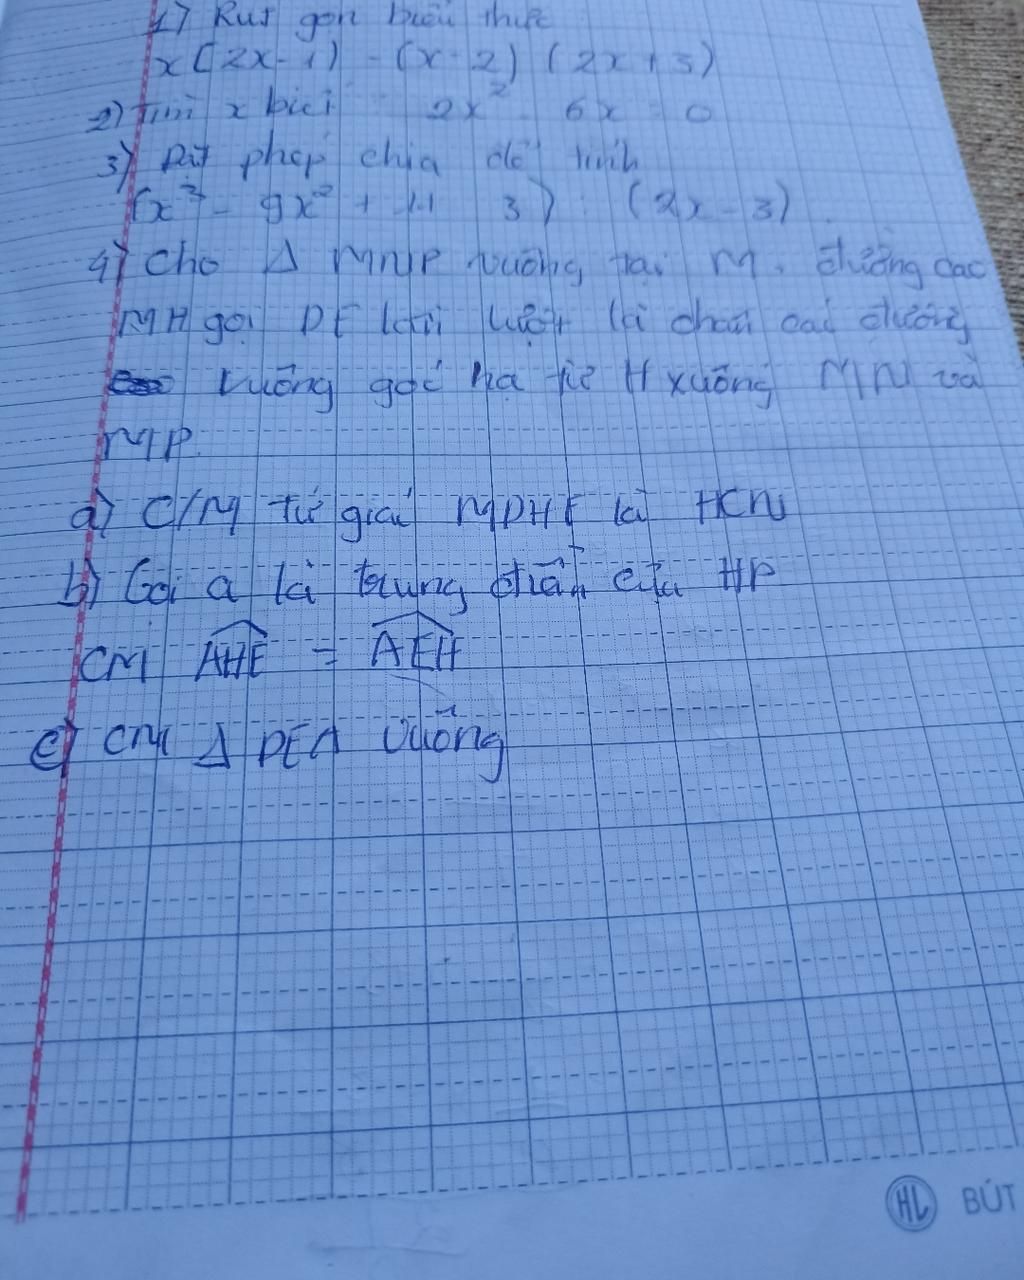 1) Rut gon biểu thức
x(2x-1) - (x-2)(2x+3)
2) Tìm x biết 2x² 6x 0
3) Đặt phép chia để tính
(x³ - 9x² + 11 3) : (2x-3)
4) Cho Δ MNP vuông tại M. đường cao
MH gọi DE lần lượt là chân các đường
vuông góc hạ từ H xuống MN và
MP.
a) C/M tứ giác MDHE là HCN
b) Gọi a là trung điểm của HP
CM AHE = AEH
c) CM Δ DEA vuông
HL BÚT